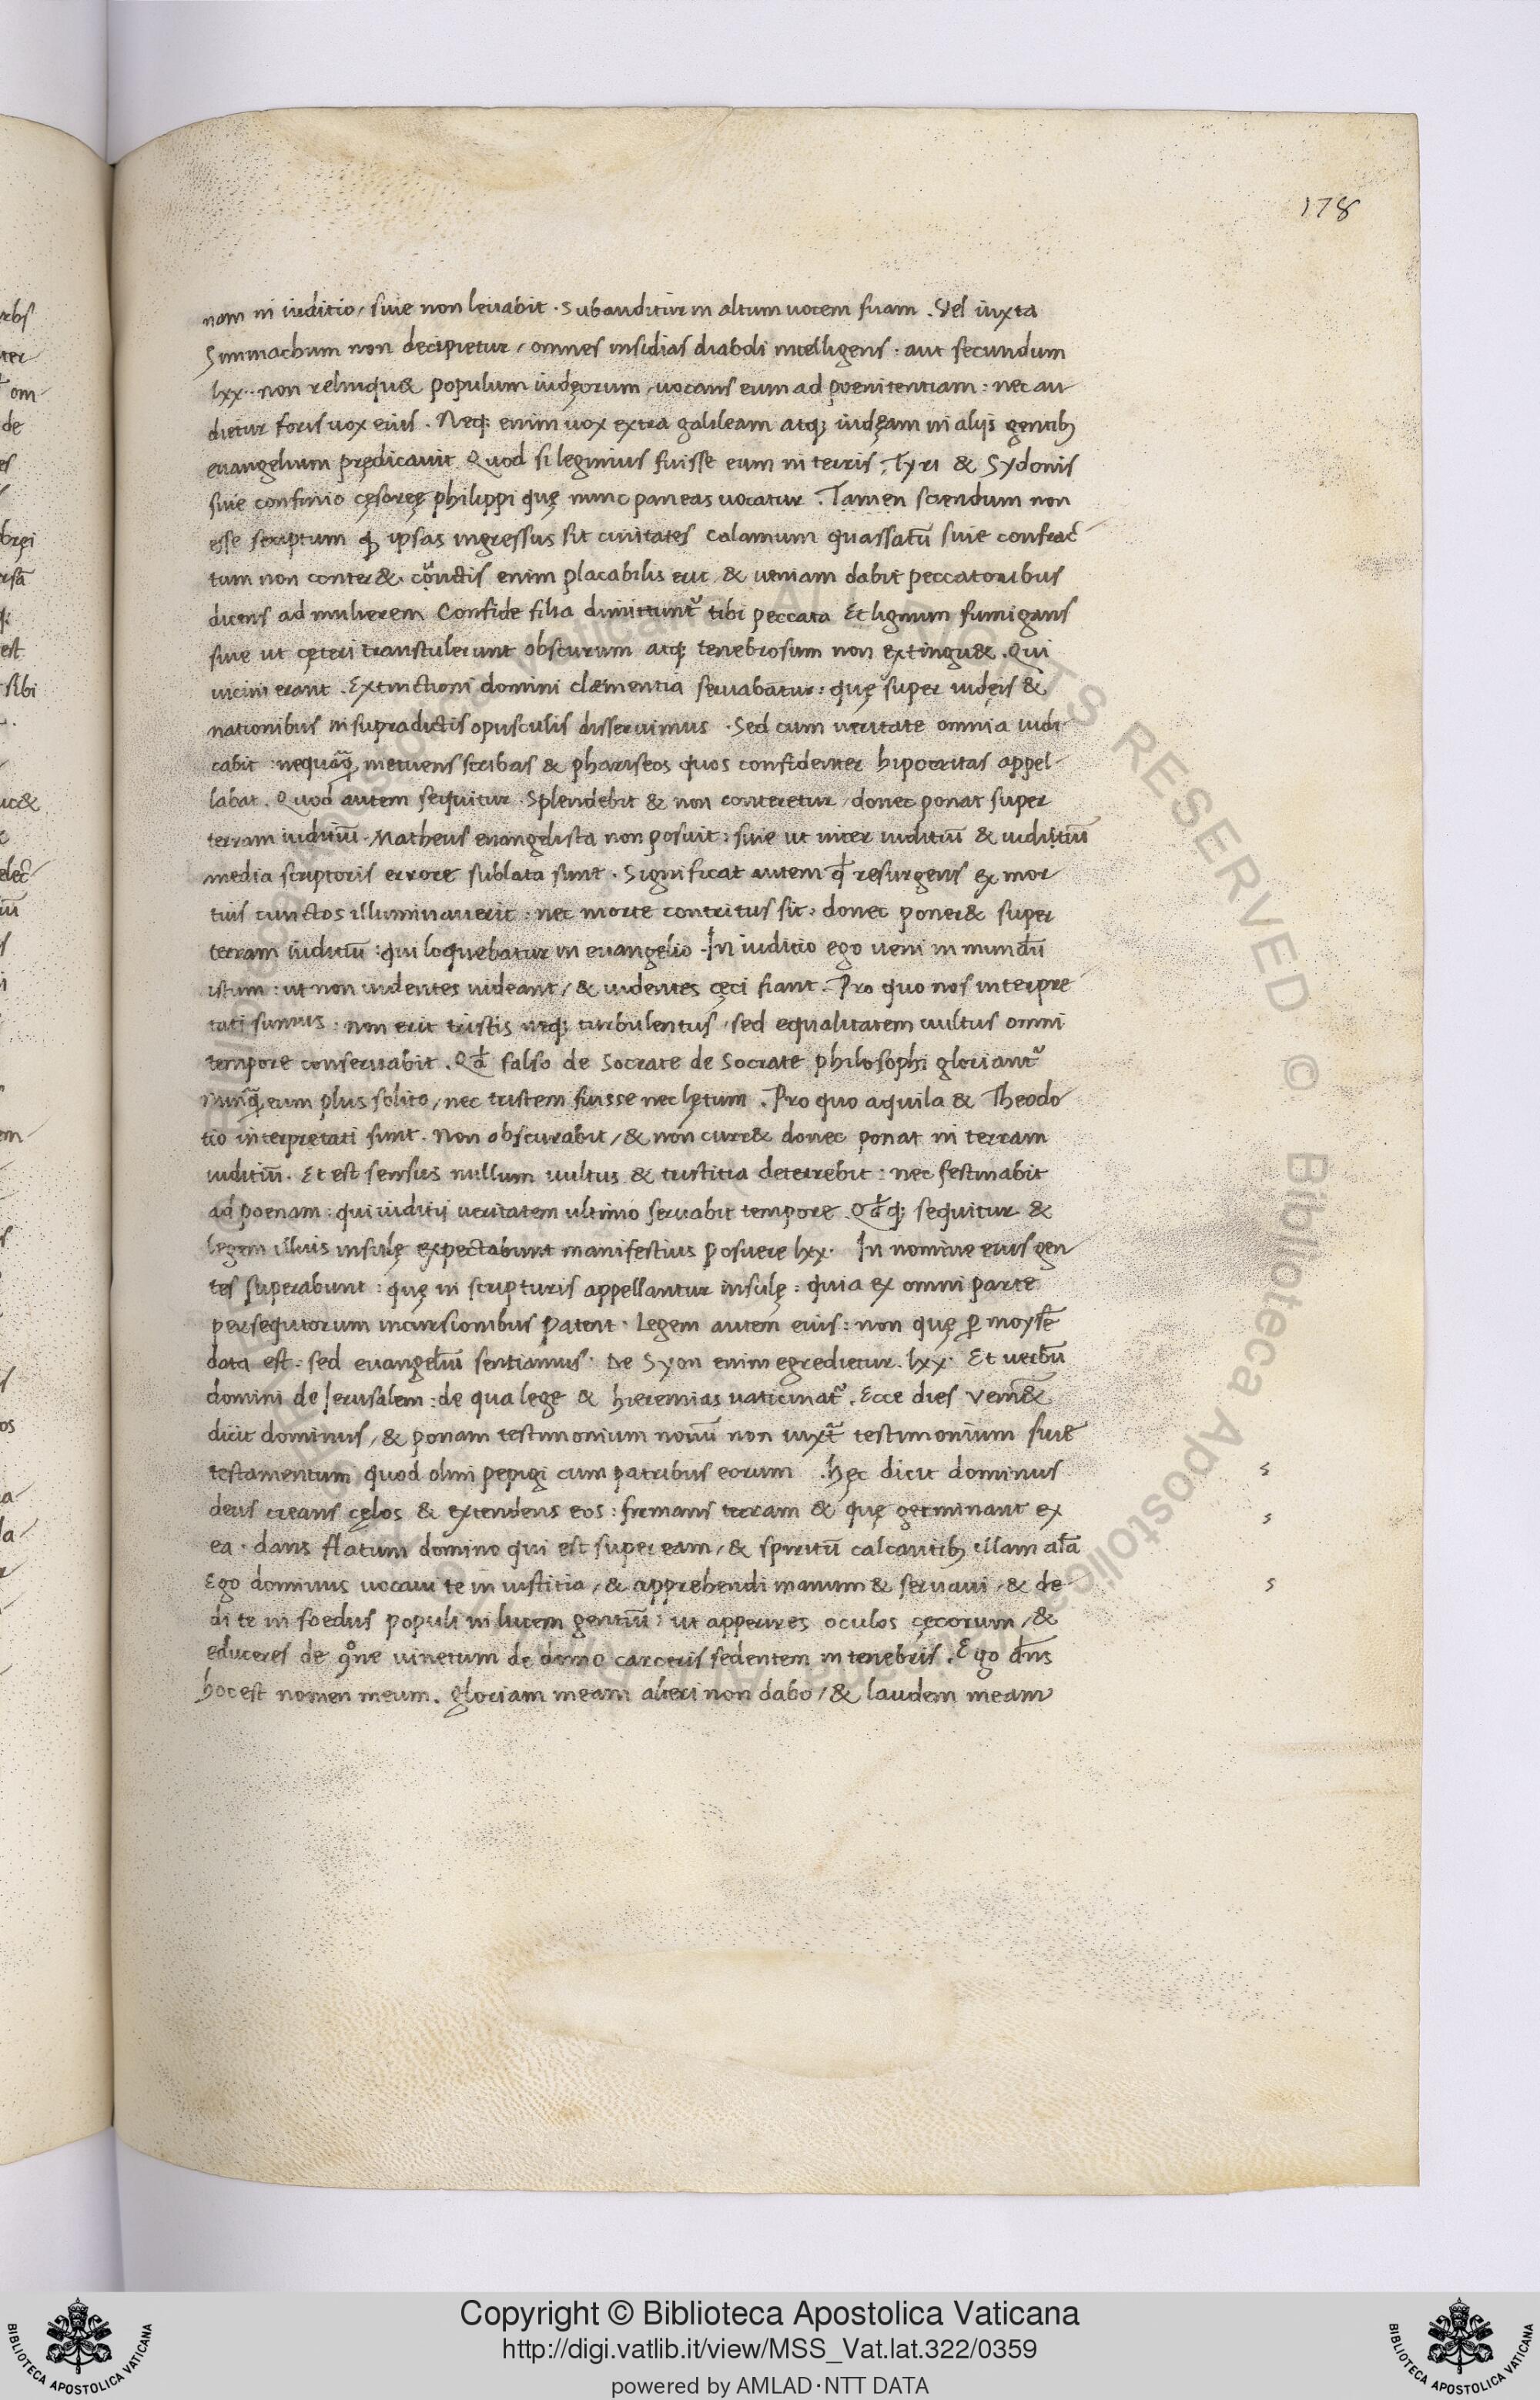 178
nam in iuditio, siue non leuabit. Subauditur in altum uocem suam. Vel iuxta
Simmachum non decipietur, omnes insidias diaboli intelligens: aut secundum
lxx. non relinqu& populum iudęorum, uocans eum ad poenitentiam: nec au
dietur foris uox eius. Neq; enim uox extra galileam atq; iudęam in alijs gentib;
euangelium prędicauit Quod si legimus fuisse eum in terris, Tyri & Sydonis
siue confinio cęsareę philippi quę nunc paneas uocatur. Tamen sciendum non
esse scriptum ꝙ ipsas ingressus sit ciuitates Calamum quassatū siue confrac
tum non conter&. enim placabilis erit & ueniam dabit peccatoribus
dicens ad mulierem Confide filia dimittunt᷑ tibi peccata Et lignum fumigans
siue ut cęteri transtulerunt obscurum atq; tenebrosum non extingu&. Qui
uicini erant. Extinctioni domini clæmentia seruabatur: quę super iudęis &
nationibus in supradictis opusculis disseruimus. Sed cum ueritate omnia iudi
cabit: nequāꝗ̄ metuens scribas & phariseos quos confidenter hipocritas appel
labat. Quod autem sequitur. Splendebit & non conteretur, donec ponat super
terram iuditiū. Matheus euangelista non posuit: siue ut inter iuditiū & iuditiū
media scriptoris errore sublata sunt. Significat autem qđ resurgens ex mor
tuis cunctos illuminauerit: nec morte contritus sit: donec poner& super
terram iuditiū: qui loquebatur in euangelio. In iuditio ego ueni in mundū
istum: ut non uidentes uideant, & uidentes cęci fiant. Pro quo nos interpre
tati sumus: non erit tristis neq; turbulentus, sed equalitatem uultus omni
tempore conseruabit. Qđ falso de Socrate de Socrate philosophi gloriant᷑
nunꝗ̄ eum plus solito, nec tristem fuisse nec lętum. Pro quo aquila & Theodo
tio interpretati sunt. Non obscurabit, & non curr& donec ponat in terram
iuditiū. Et est sensus nullum uultus & tristitia deterrebit: nec festinabit
ad poenam: qui iuditij ueritatem ultimo seruabit tempore. Qđq; sequitur &
legem illius insulę expectabunt manifestius posuere lxx. In nomine eius gen
tes superabunt: quę in scripturis appellantur insulę: quia ex omni parte
persequtorum incursionibus patent. Legem autem eius: non quę ꝑ moysē
data est. sed euangeliū sentiamus. De Syon enim egredietur. lxx. Et uerbū
domini de Ierusalem: de qua lege & hieremias uaticinat᷑. Ecce dies ueni&
dicit dominus, & ponam testimonium nouū non iuxtā testimonium siue
testamentum quod olim pepigi cum patribus eorum. hęc dicit dominus
deus creans cęlos & extendens eos: firmans terram & quę germinant ex
ea. dans flatum domino qui est super eam, & spiritū calcantib; illam
Ego dominus uocaui te in iustitia, & apprehendi manum & seruaui, & de
di te in foedus populi in lucem gentiū: ut apperires oculos cęcorum, &
educeres de uinctum de domo carceris sedentem in tenebris. Ego dn̄s
hoc est nomen meum. gloriam meam alteri non dabo, & laudem meam
Copyright © Biblioteca Apostolica Vaticana
http://digi.vatlib.it/view/MSS_Vat.lat.322/0359
powered by AMLAD·NTT DATA